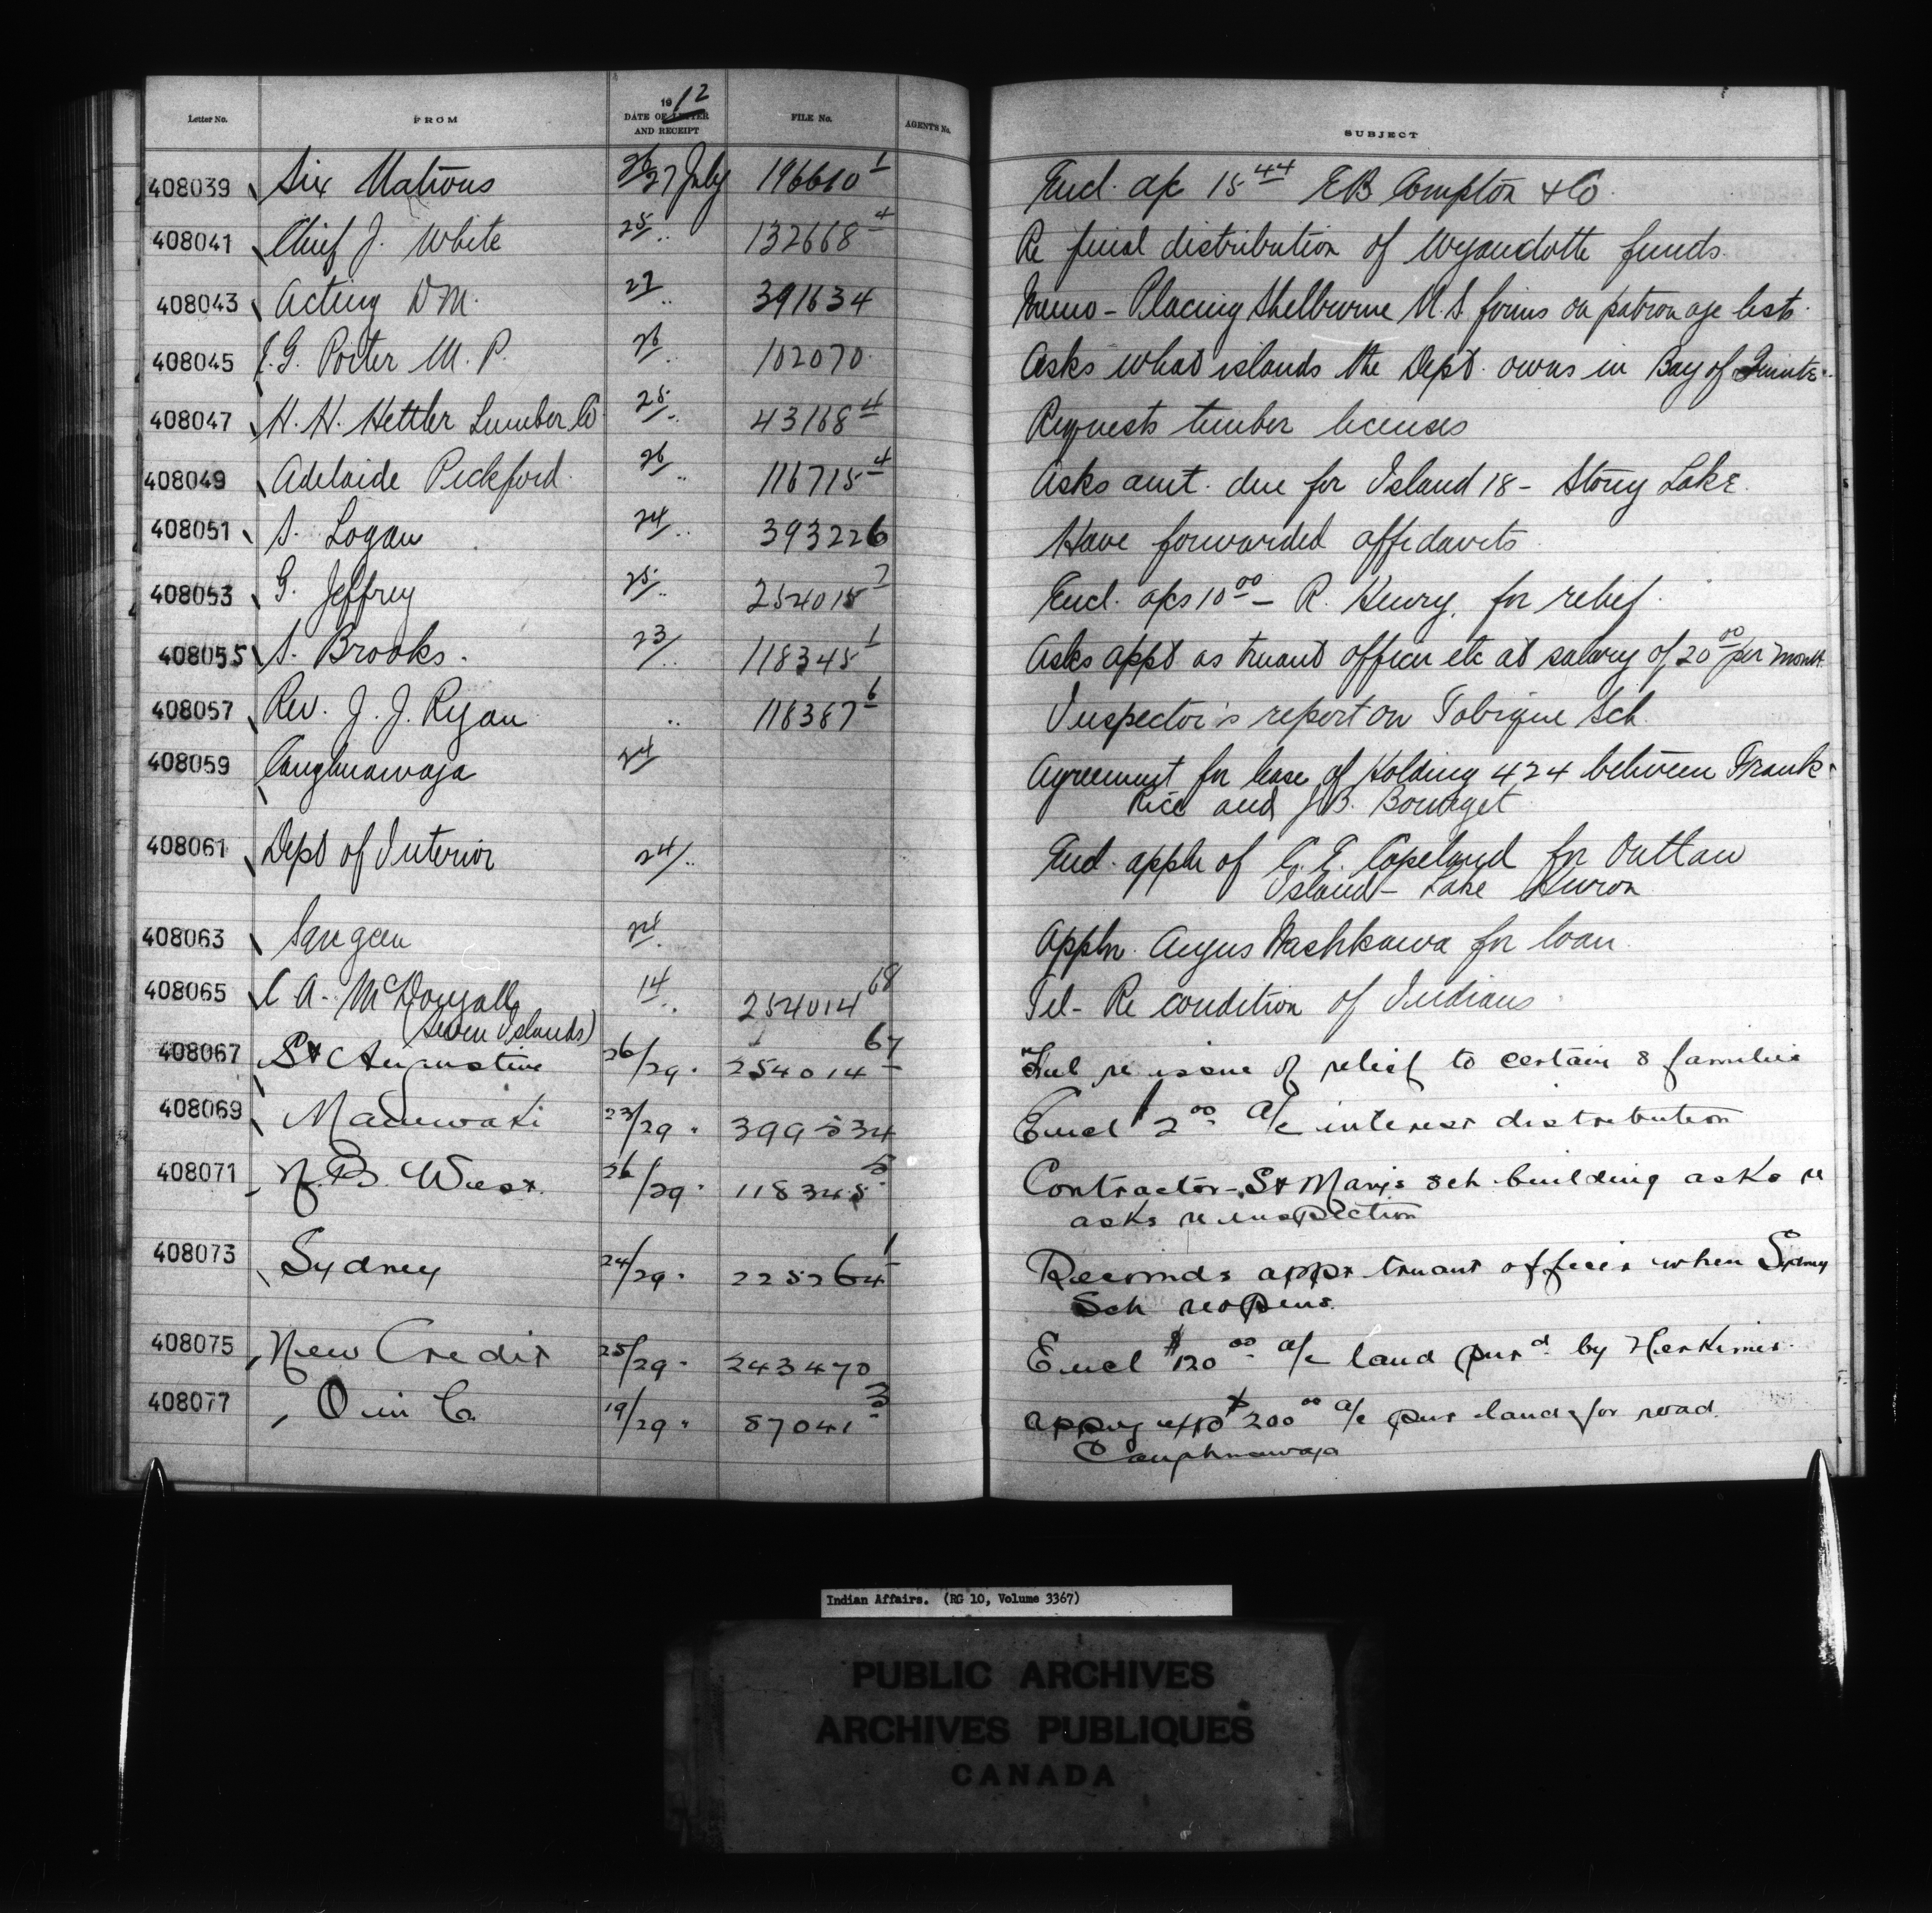 Letter No. FROM 1912 DATE OF LETTER AND RECEIPT FILE No. AGENT'S No. SUBJECT
408039 Six Nations 26/27 July 196610 1 Encl. a/c 15 44 E B Compton & Co.
408041 Chief J. White 25/ .. 132668 4 Re final distribution of Wyandotte funds.
408043 Acting D M. 27/ .. 391634 Memo - Placing Shelburne N.S. firms on patronage lists.
408045 E. G. Porter M. P. 26/ .. 102070. Asks what islands the Dept. owns in Bay of Quinte.
408047 H. H. Hettler Lumber Co 25/ .. 43168 4 Requests timber licenses
408049 Adelaide Pickford. 26/ .. 116715 4 Asks amt. due for Island 18 - Stony Lake.
408051 S. Logan 24/ .. 393226 Have forwarded affidavits
408053 G. Jeffrey 25/ .. 254015 7 Encl. a/cs 10 00 - R. Henry, for relief.
408055 S. Brooks. 23/ .. 118345 1 Asks appt as truant officer etc at salary of 20 00 per month.
408057 Rev. J. J. Ryan .. 118367 6 Inspector's report on Tobique Sch.
408059 Caughnawaga 24/ Agreement for lease of Holding 424 between Frank
Rice and J.B. Bourget
408061 Dept of Interior 24/ .. Encl. appln of Copeland for Outlaw
Island - Lake Huron
408063 Saugeen 24/ . Appln. Angus Nashkawa for loan.
408065 C A. McDougall 14/ .. 254014 68 Tel - Re condition of Indians
(Seven Islands)
408067 St Augustine 26/29 . 254014 67 Tel re issue of relief to certain 8 families
408069 Maniwaki 23/29 . 399534 Encl 2 00 a/c interest distribution
408071 N. B. West. 26/29 . 118345 5 Contractor - St Marys Sch building asks re
asks re inspection
408073 Sydney 24/29 . 225264 1 Recomds appt truant officer when Sydney
Sch reopens.
408075 New Credit 25/29 . 243470 Encl $120 00 a/c land purd by Herkimer.
408077 O in C. 19/29 . 87041 3 appvg exp $200 00 a/c pur land for road.
Caughnawaga
Indian Affairs. (RG 10, Volume 3367)
PUBLIC ARCHIVES
ARCHIVES PUBLIQUES
CANADA